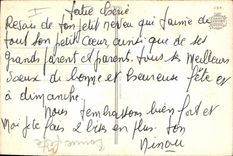 Jolie Chérie
Reçois de ton petit neveu qui t'aime de
tout son petit Cœur, ainsi que de ses
Grands parent et parents. Tous les Meilleurs
Voeux de bonne et heureuse fête et
à dimanche.
Nous t'embrassons bien fort et
Moi je te fais 2 bises en plus. ton
Ninou
Bonne fête